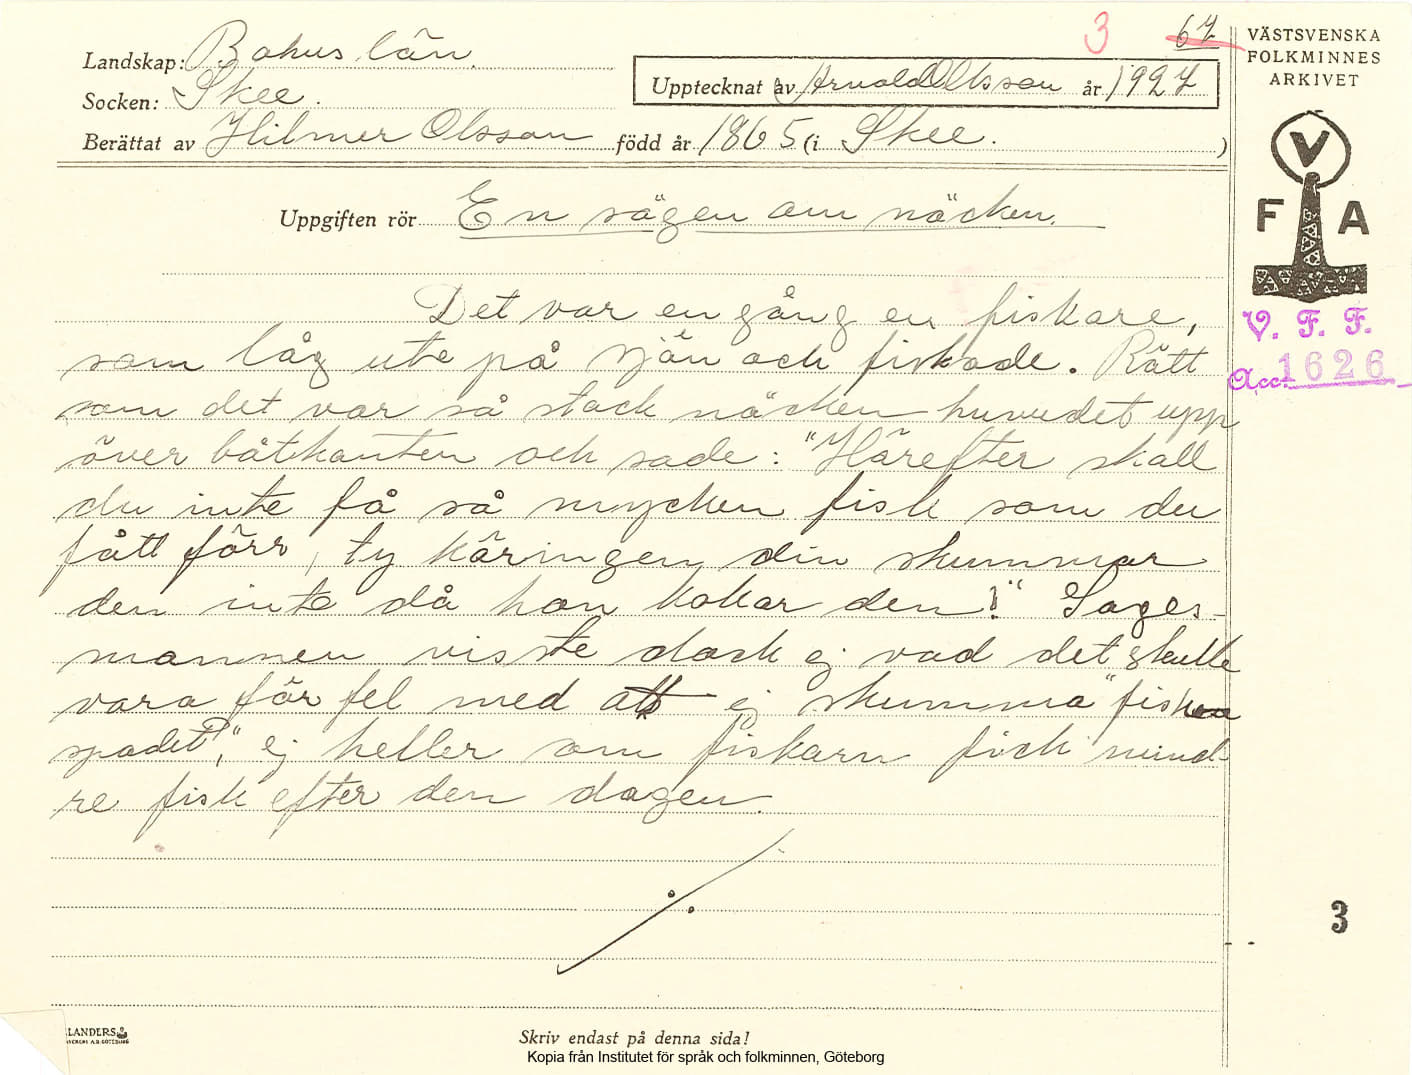 3 67
VÄSTSVENSKA
FOLKMINNES
ARKIVET
Landskap: Bohus län.
Socken: Skee.
Upptecknat av Arnold Olsson år 1927
Berättat av Hilmer Olsson född år 1865 (i Skee. )
V
F A
Uppgiften rör En sägen om näcken.
V. F. F.
Acc. 1626
Det var en gång en fiskare,
som låg ute på sjön och fiskade. Rätt
som det var så stack näcken huvudet upp
över båtkanten och sade: "Härefter skall
du inte få så mycken fisk som du
fått förr, ty käringen din skummar
den inte då hon kokar den!" Sages-
mannen visste dock ej vad det skulle
vara för fel med att ej skumma "fiske
spadet", ej heller om fiskarn fick mind-
re fisk efter den dagen.
3
LANDERS
Skriv endast på denna sida!
Kopia från Institutet för språk och folkminnen, Göteborg